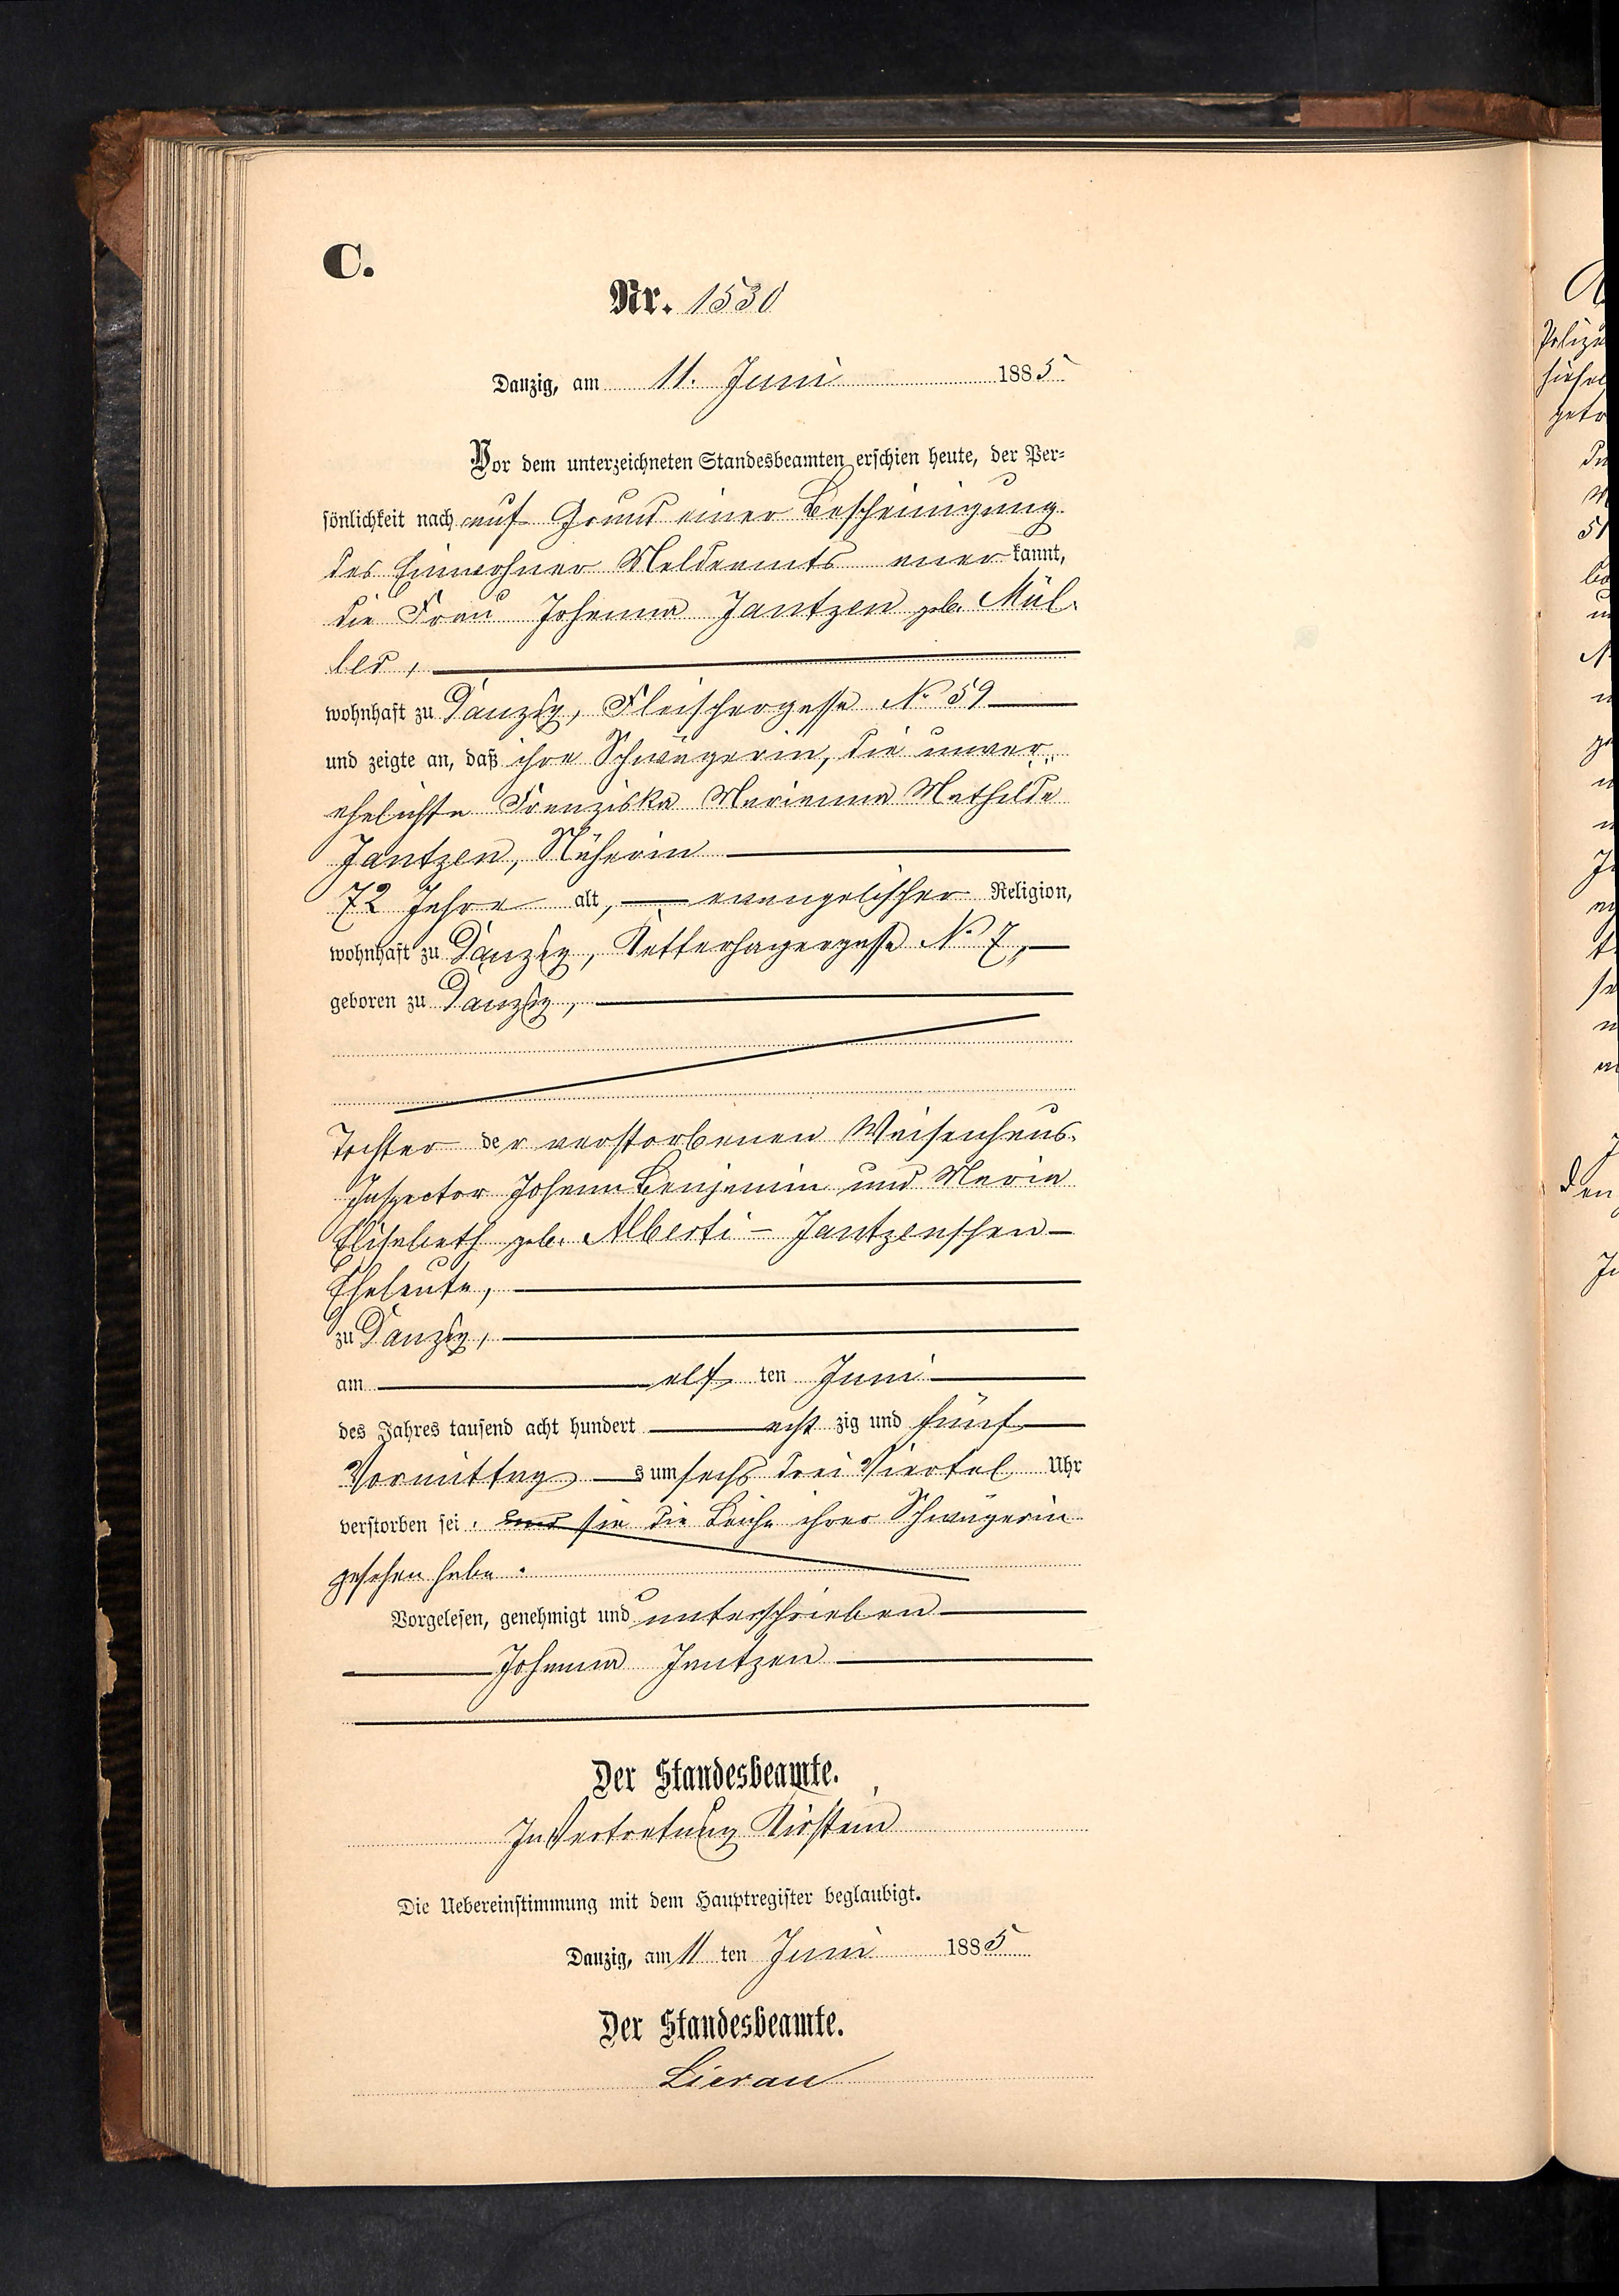 C.
Nr. 1530
Danzig, am 11. Juni 1885.
Vor dem unterzeichneten Standesbeamten erschien heute, der Per=
sönlichkeit nach auf Grund einer Bescheinigung
des Einwohner Meldeamts anerkannt,
die Frau Johanna Jantzen geb. Mül-
ler,
wohnhaft zu Danzig, Fleischergasse No 59
und zeigte an, daß ihre Schwägerin, die unver-
ehelichte Franziska Marianna Mathilde
Jantzen, Näherin
72 Jahre alt, evangelischer Religion,
wohnhaft zu Danzig, Ketterhagergasse No 7,
geboren zu Danzig,
Tochter der verstorbenen Waisenhaus-
Inspector Johann Benjamin und Maria
Elisabeth geb. Alberti - Jantzenschen -
Eheleute,
zu Danzig,
am elften Juni
des Jahres tausend acht hundert achtzig und fünf
Vormittags um sechs drei Viertel Uhr
verstorben sei, und sie die Leiche ihrer Schwägerin
gesehen habe.
Vorgelesen, genehmigt und unterschrieben
Johanna Jantzen
Der Standesbeamte.
In Vertretung Kirstein
Die Uebereinstimmung mit dem Hauptregister beglaubigt.
Danzig, am 11ten Juni 1885
Der Standesbeamte.
Lierau